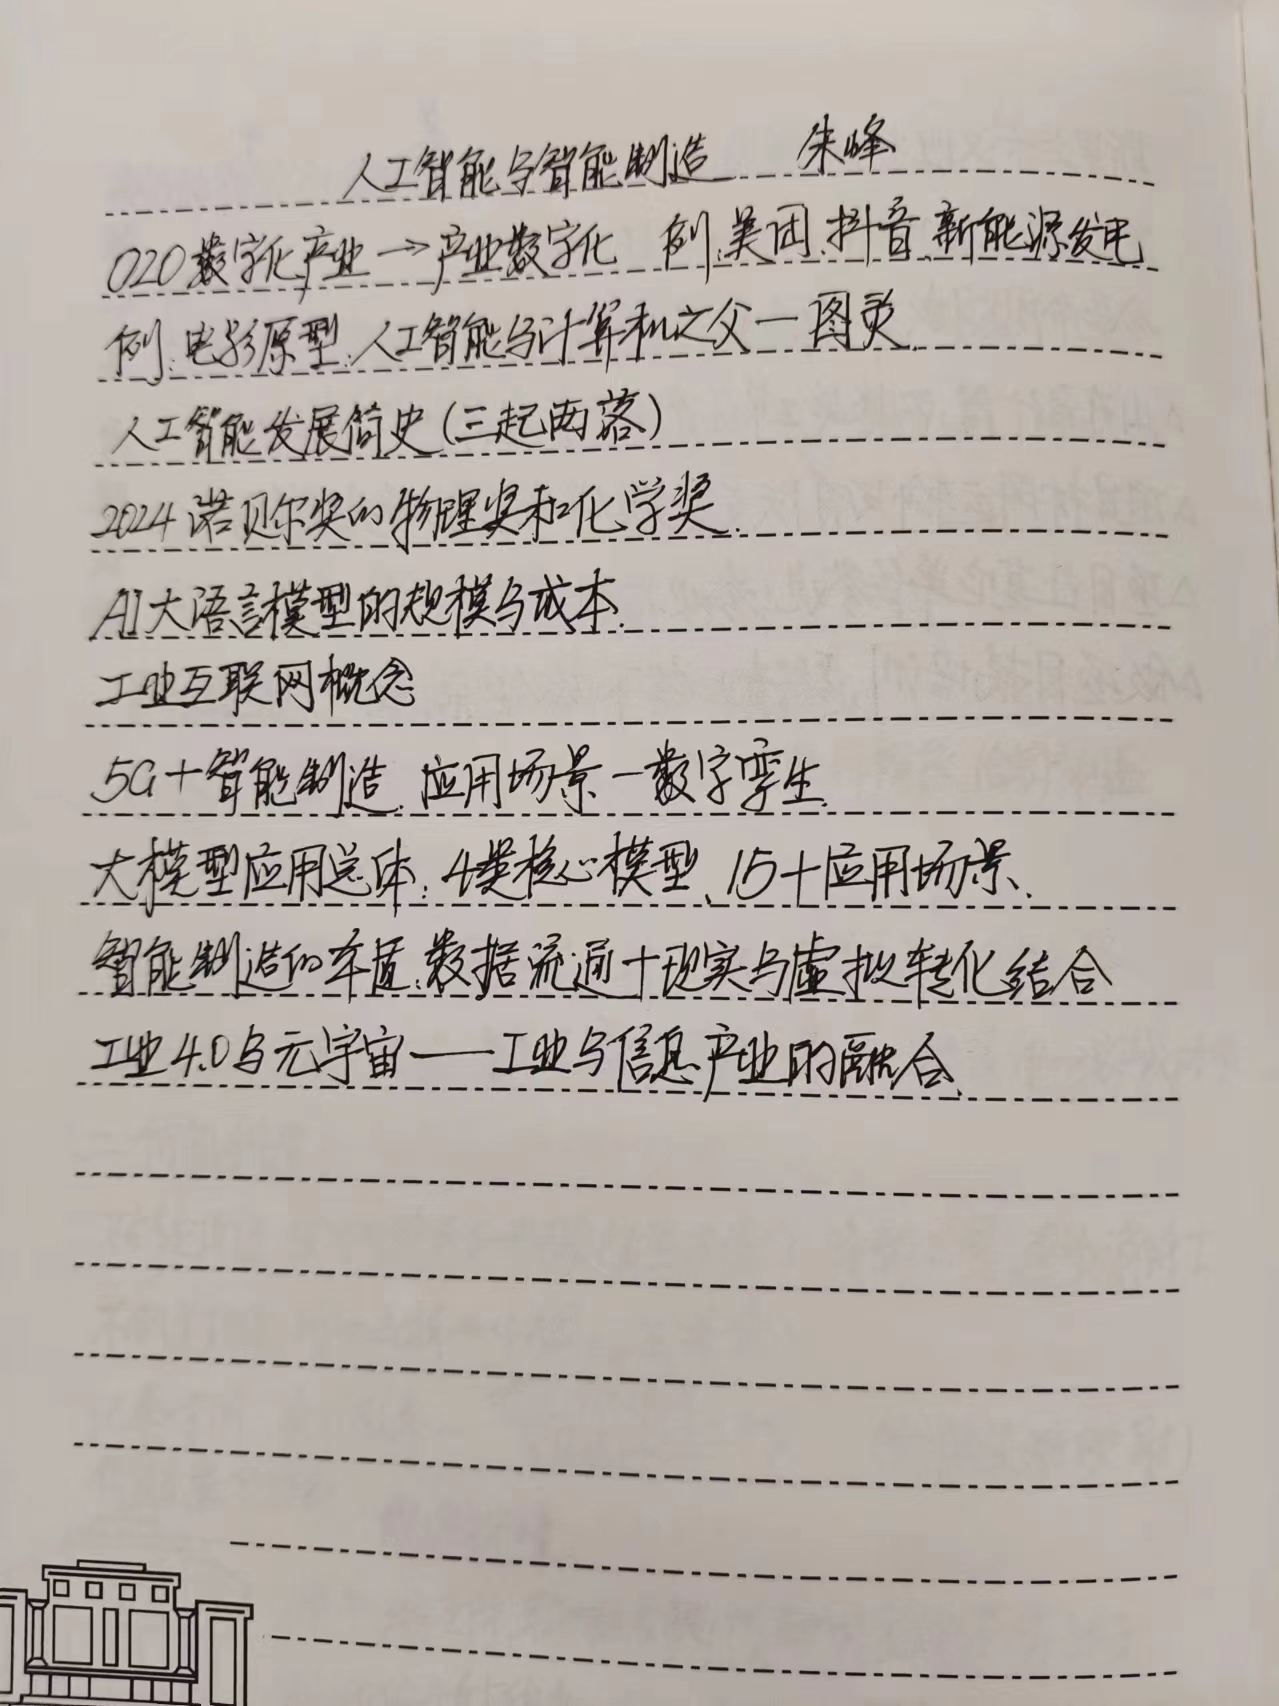 人工智能与智能制造 朱峰
O2O数字化产业→产业数字化 例.美团.抖音.新能源发电
例.电影原型.人工智能与计算机之父—图灵.
人工智能发展简史(三起两落)
2024诺贝尔奖的物理奖和化学奖.
AI大语言模型的规模与成本.
工业互联网概念
5G+智能制造.应用场景—数字孪生.
大模型应用总体:4类核心模型、15+应用场景.
智能制造的本质:数据流通+现实与虚拟转化结合
工业4.0与元宇宙——工业与信息产业的融合.